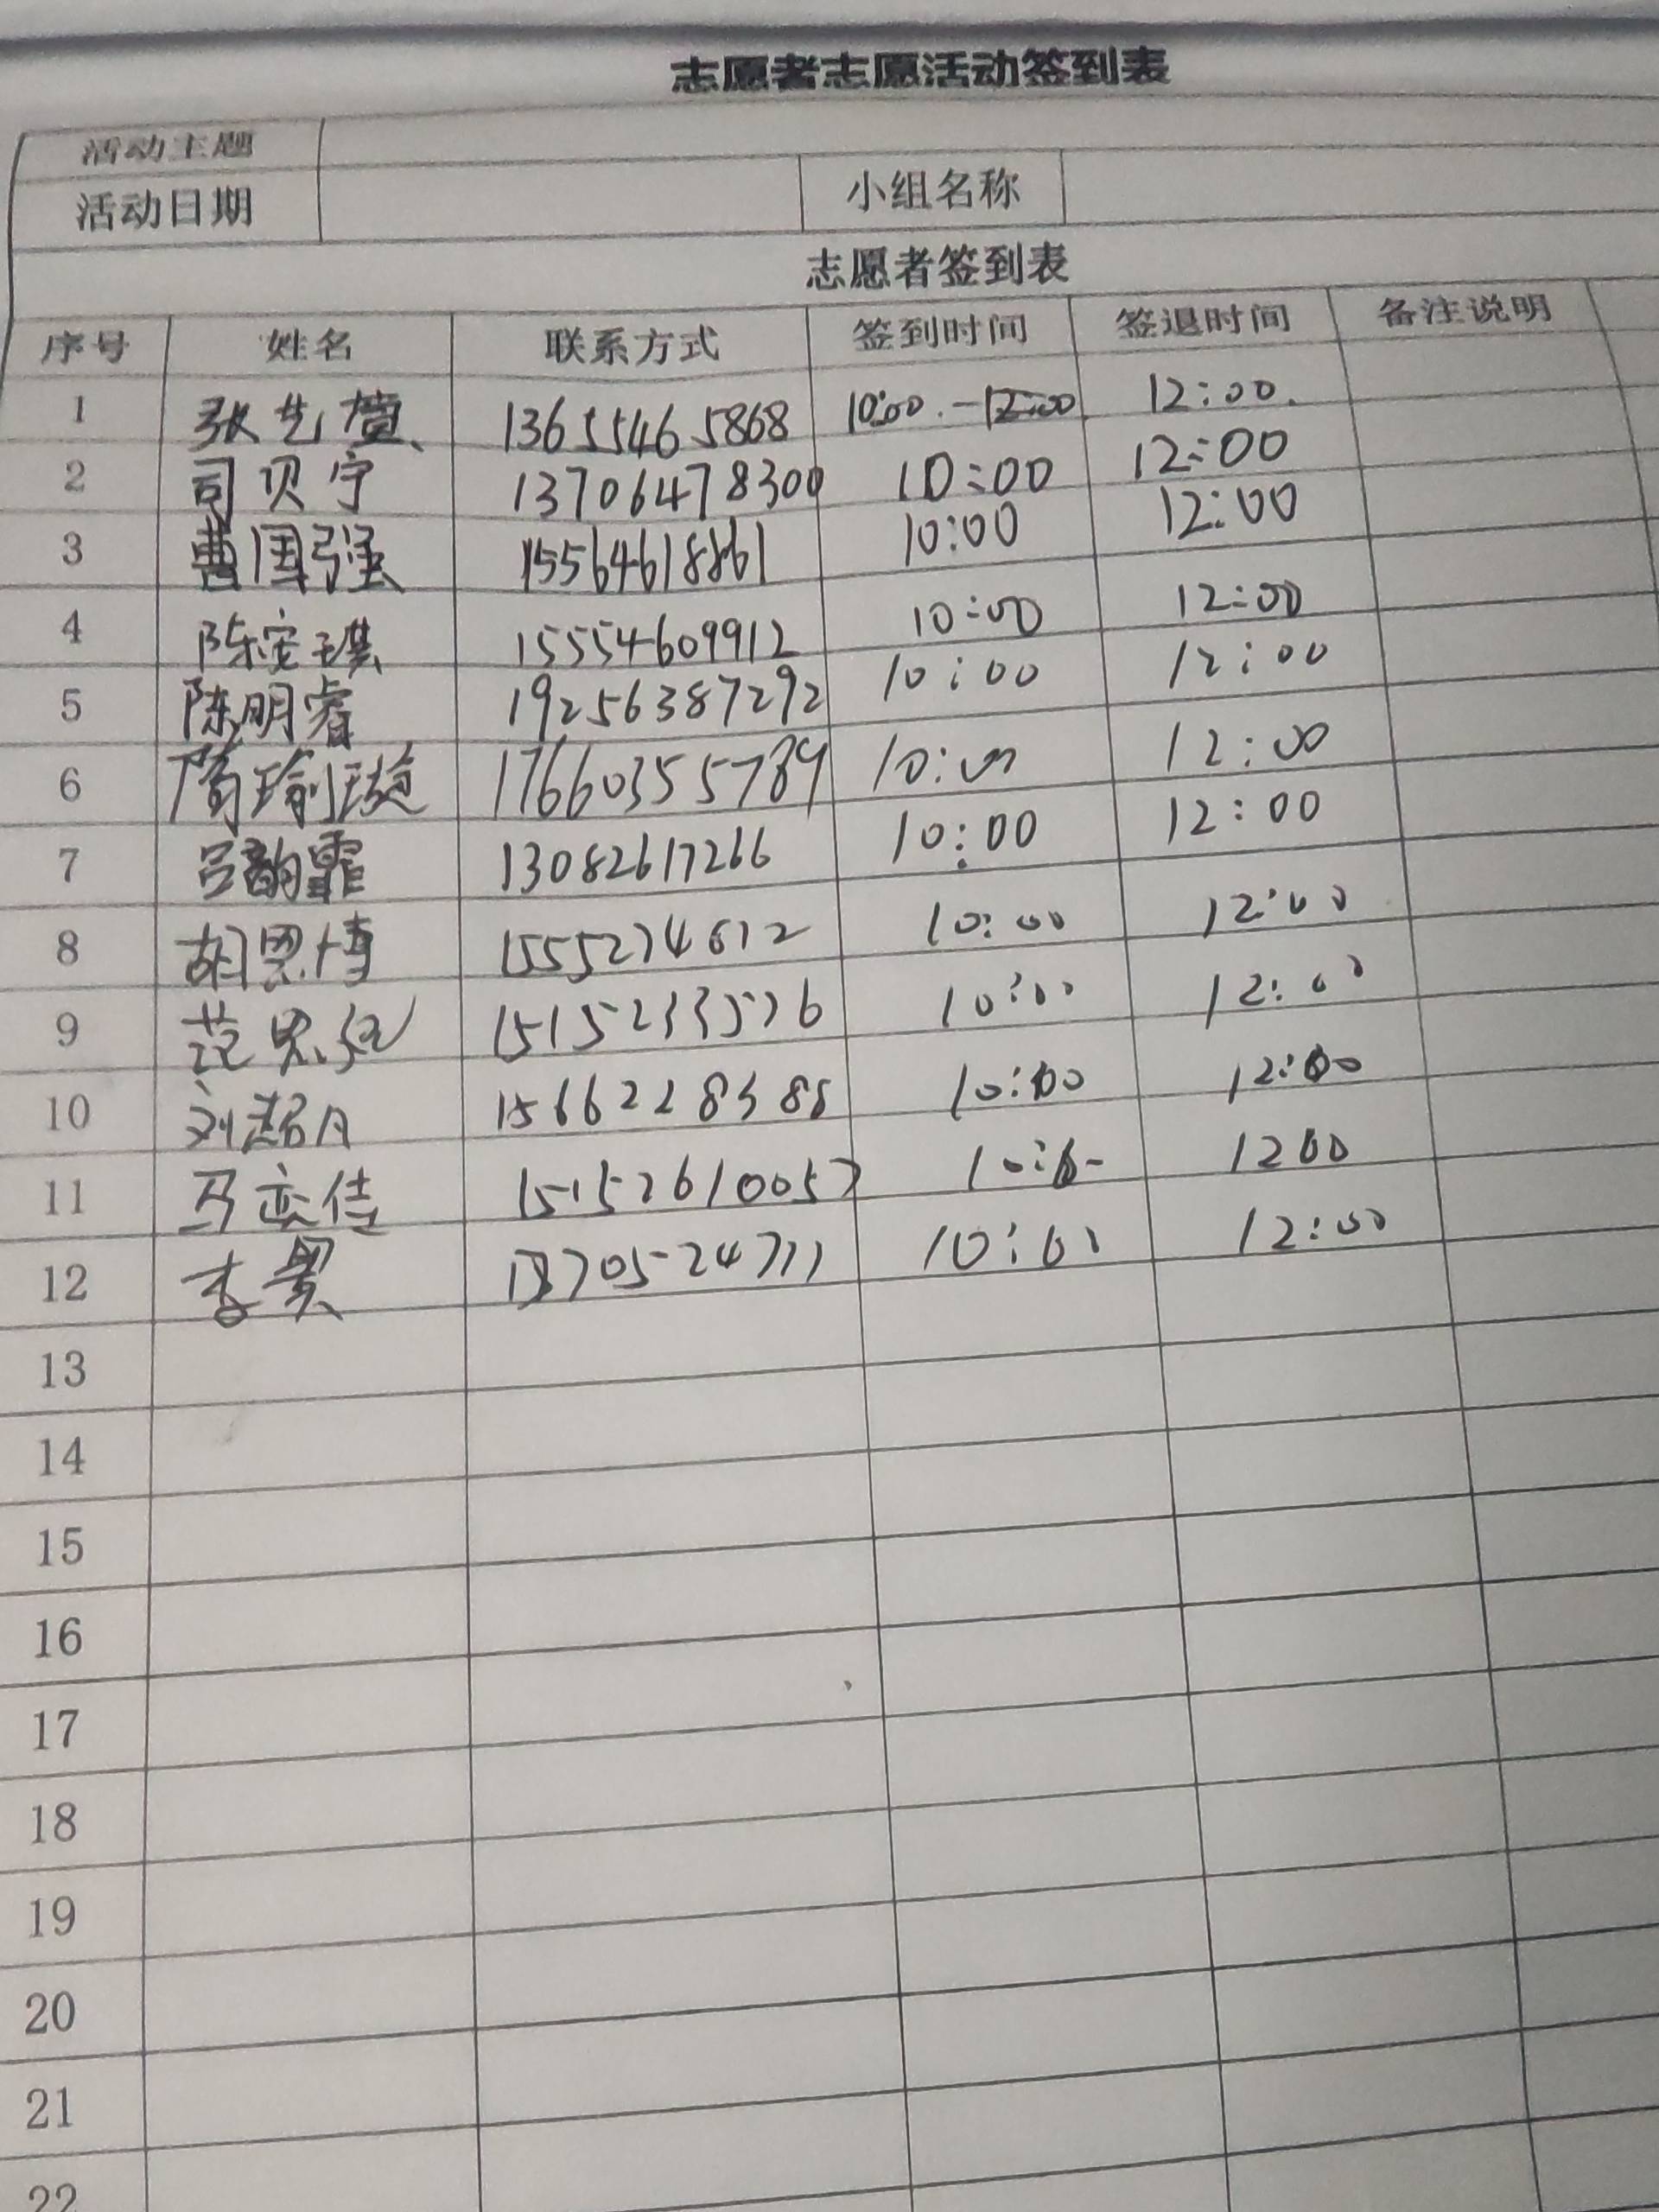 志愿者志愿活动签到表
活动主题
活动日期 小组名称
志愿者签到表
序号 姓名 联系方式 签到时间 签退时间 备注说明
1 张艺萱 13655465868 10:00.-12:00 12:00.
2 司贝宁 13706478300 10:00 12:00
3 曹国强 15564618861 10:00 12:00
4 陈宝琪 15554609912 10:00 12:00
5 陈明睿 19256387292 10:00 12:00
6 隋瑜璇 17660355789 10:00 12:00
7 吕韵霏 13082617266 10:00 12:00
8 胡恩博 1555274612 10:00 12:00
9 范思 10:00 12:00
10 刘超凡 1566228388 10:00 12:00
11 马 佳 15152610057 10:00 1200
12 李 10:00 12:00
13
14
15
16
17
18
19
20
21
22